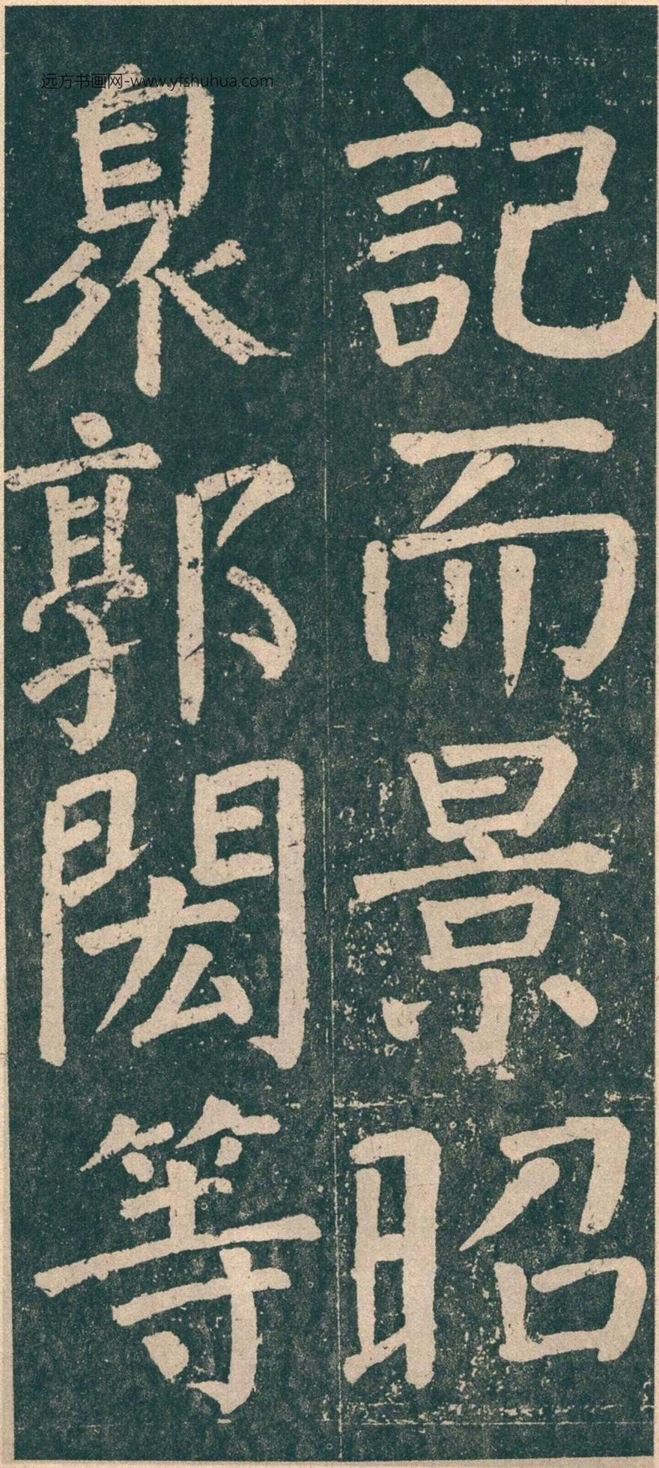 远方书画网-www.yfshuhua.com
記而景昭
臮郭閎等